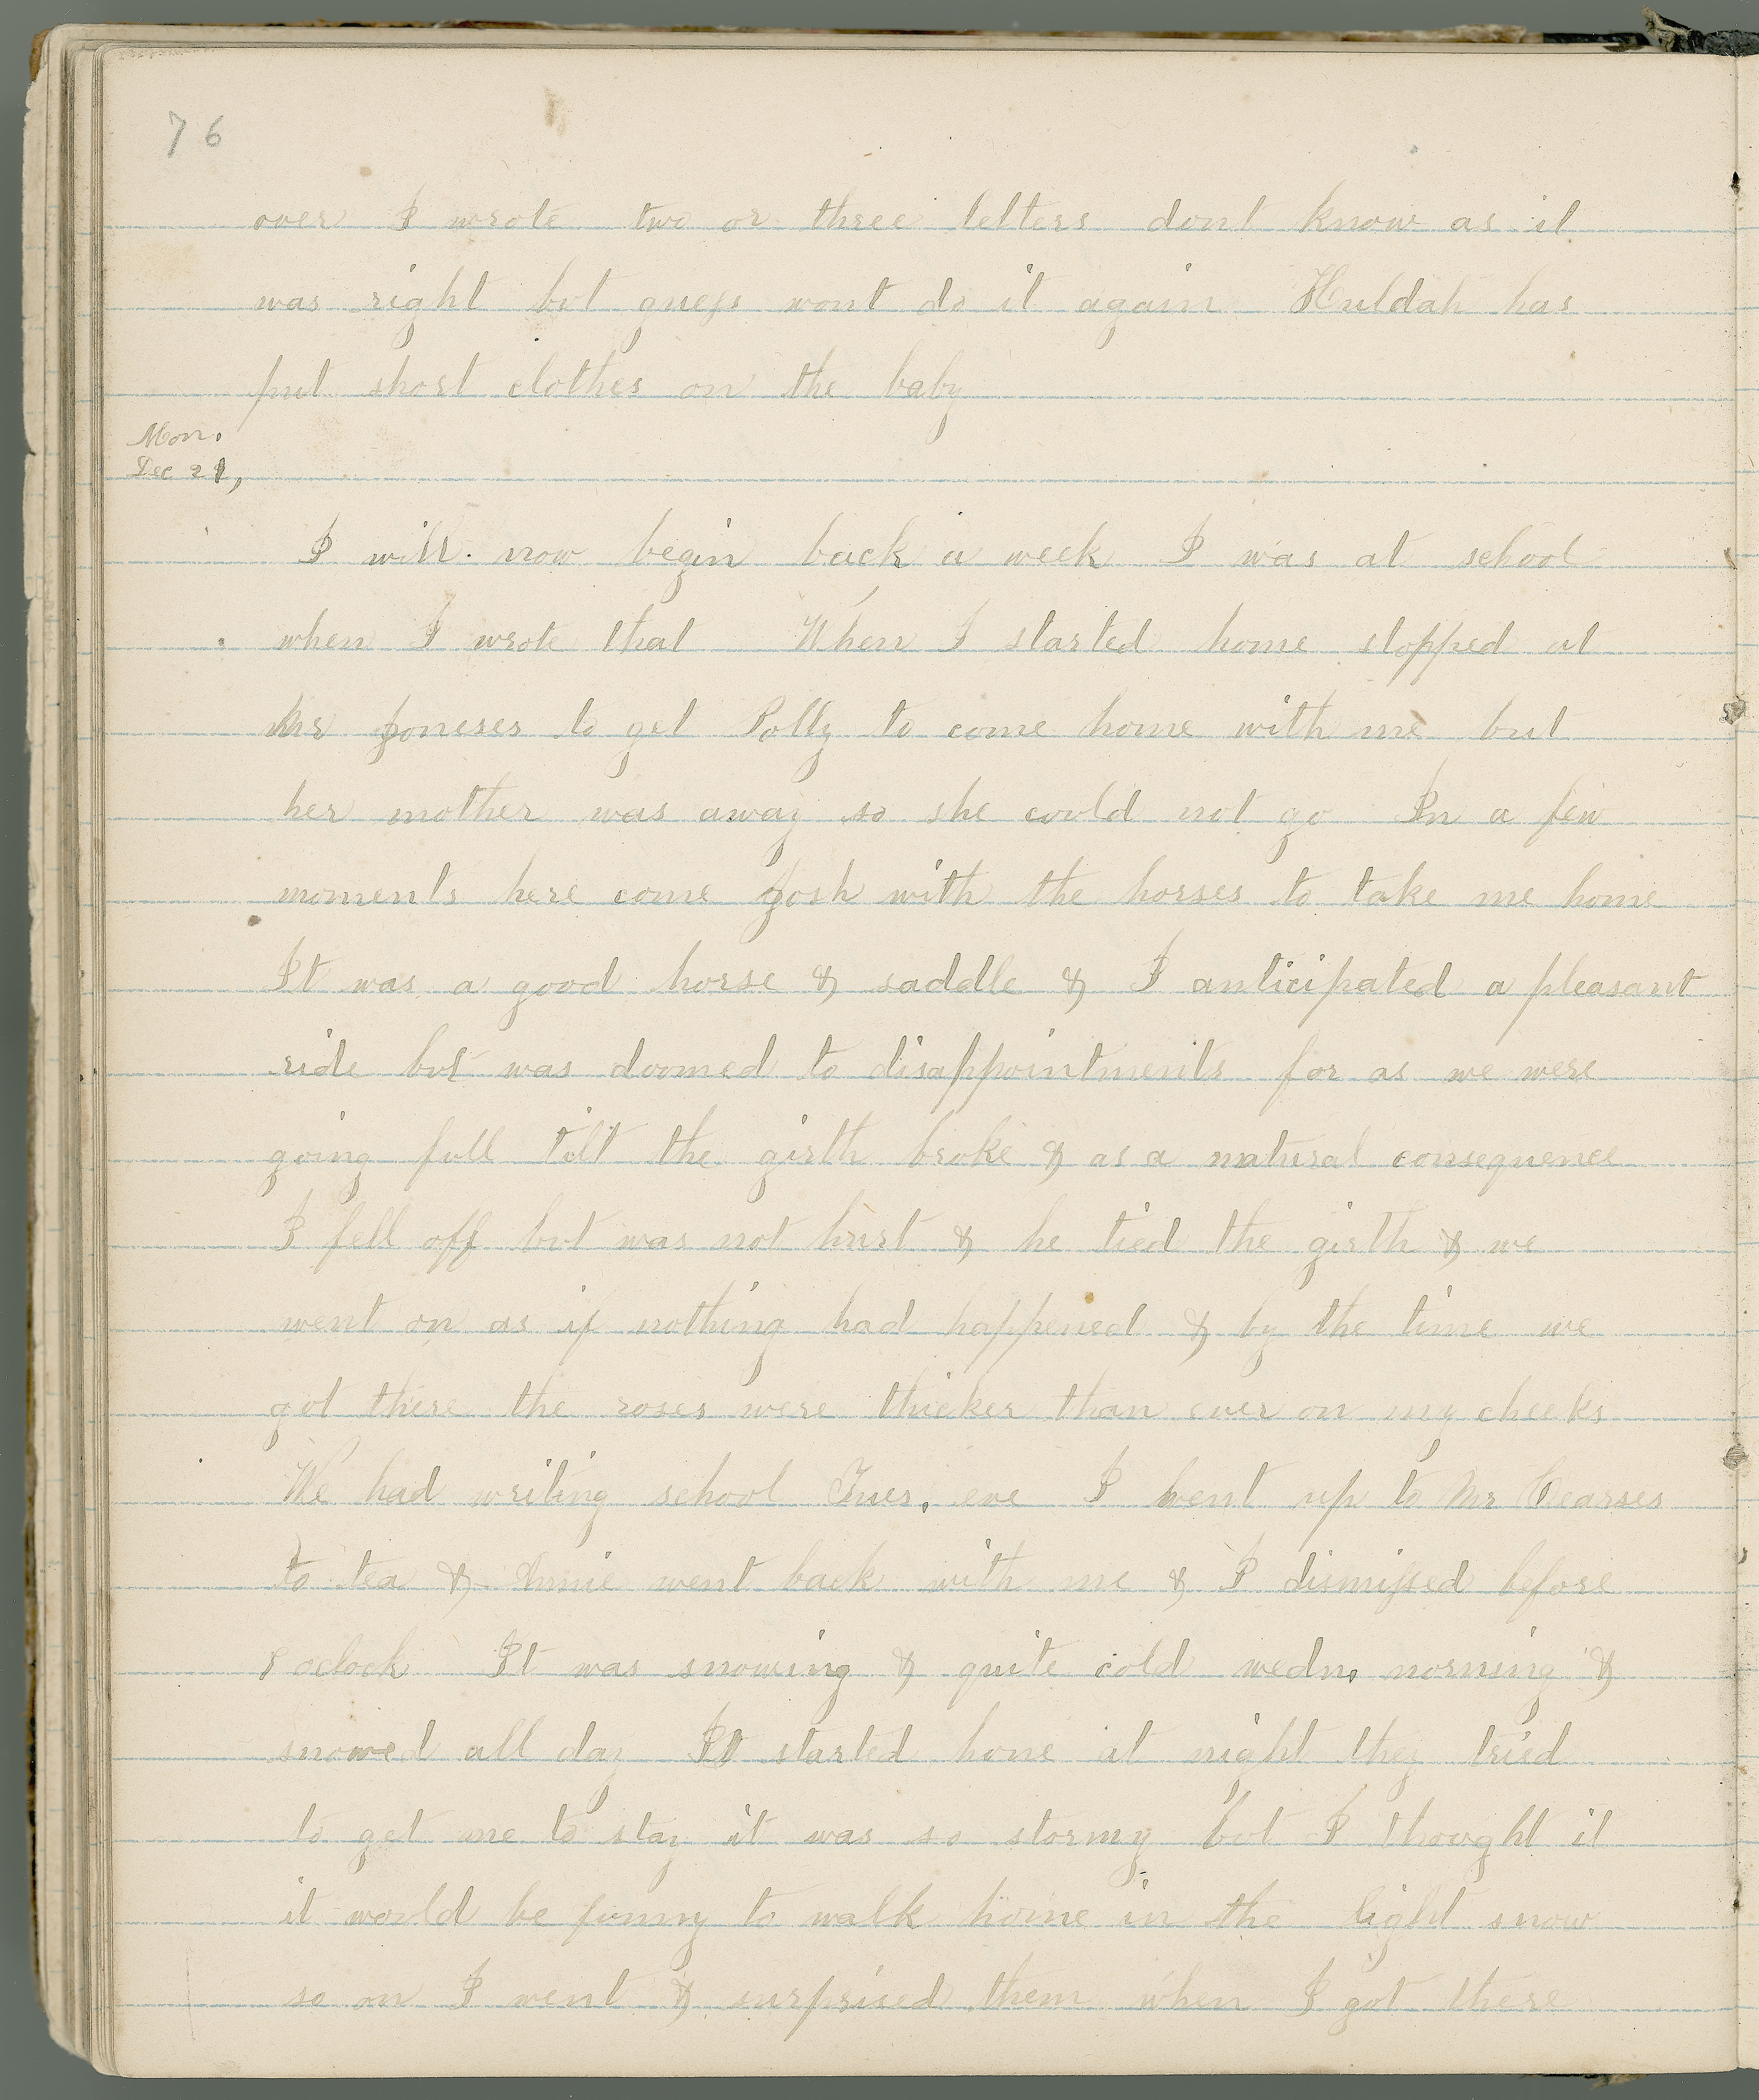 76
over I wrote two or three letters dont know as it
was right but guess wont do it again Huldah has
put short clothes on the baby
Mon.
Dec 21,
I will now begin back a week I was at school
when I wrote that When I started home stopped at
Mr Joneses to get Polly to come home with me but
her mother was away so she could not go In a few
moments here come Josh with the horses to take me home
It was a good horse & saddle & I anticipated a pleasant
ride but was doomed to disappointments for as we were
going full tilt the girth broke & as a natural consequence
I fell off but was not hurt & he tied the girth & we
went on as if nothing had happened & by the time we
got there the roses were thicker than ever on my cheeks
We had writing school Tues. eve I went up to Mr Hearses
to tea & Annie went back with me & I dismissed before
8 oclock It was snowing & quite cold wedn. morning &
snowed all day I started home at night they tried
to get me to stay it was so stormy but I thought it
it would be funny to walk home in the light snow
so on I went & surprised them when I got there